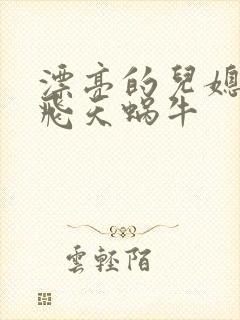 漂亮的兒媳
飛天蝸牛
雲輕陌